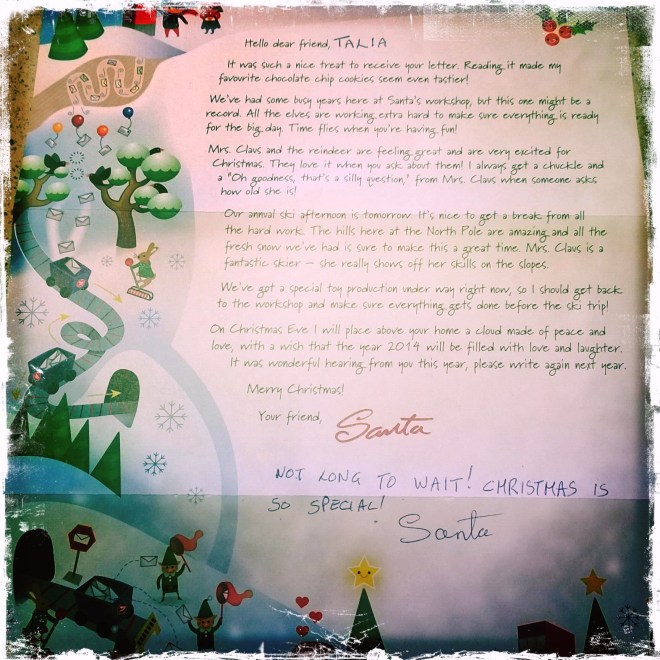 Hello dear friend, TALIA
It was such a nice treat to receive your letter. Reading it made my
favourite chocolate chip cookies seem even tastier!
We've had some busy years here at Santa's workshop, but this one might be a
record. All the elves are working extra hard to make sure everything is ready
for the big day. Time flies when you're having fun!
Mrs. Claus and the reindeer are feeling great and are very excited for
Christmas. They love it when you ask about them! I always get a chuckle and
a "Oh goodness, that's a silly question," from Mrs. Claus when someone asks
how old she is!
Our annual ski afternoon is tomorrow. It's nice to get a break from all
the hard work. The hills here at the North Pole are amazing and all the
fresh snow we've had is sure to make this a great time. Mrs. Claus is a
fantastic skier – she really shows off her skills on the slopes.
We've got a special toy production under way right now, so I should get back
to the workshop and make sure everything gets done before the ski trip!
On Christmas Eve I will place above your home a cloud made of peace and
love, with a wish that the year 2014 will be filled with love and laughter.
It was wonderful hearing from you this year, please write again next year.
Merry Christmas!
Your friend,
Santa
NOT LONG TO WAIT! CHRISTMAS IS
SO SPECIAL!
Santa